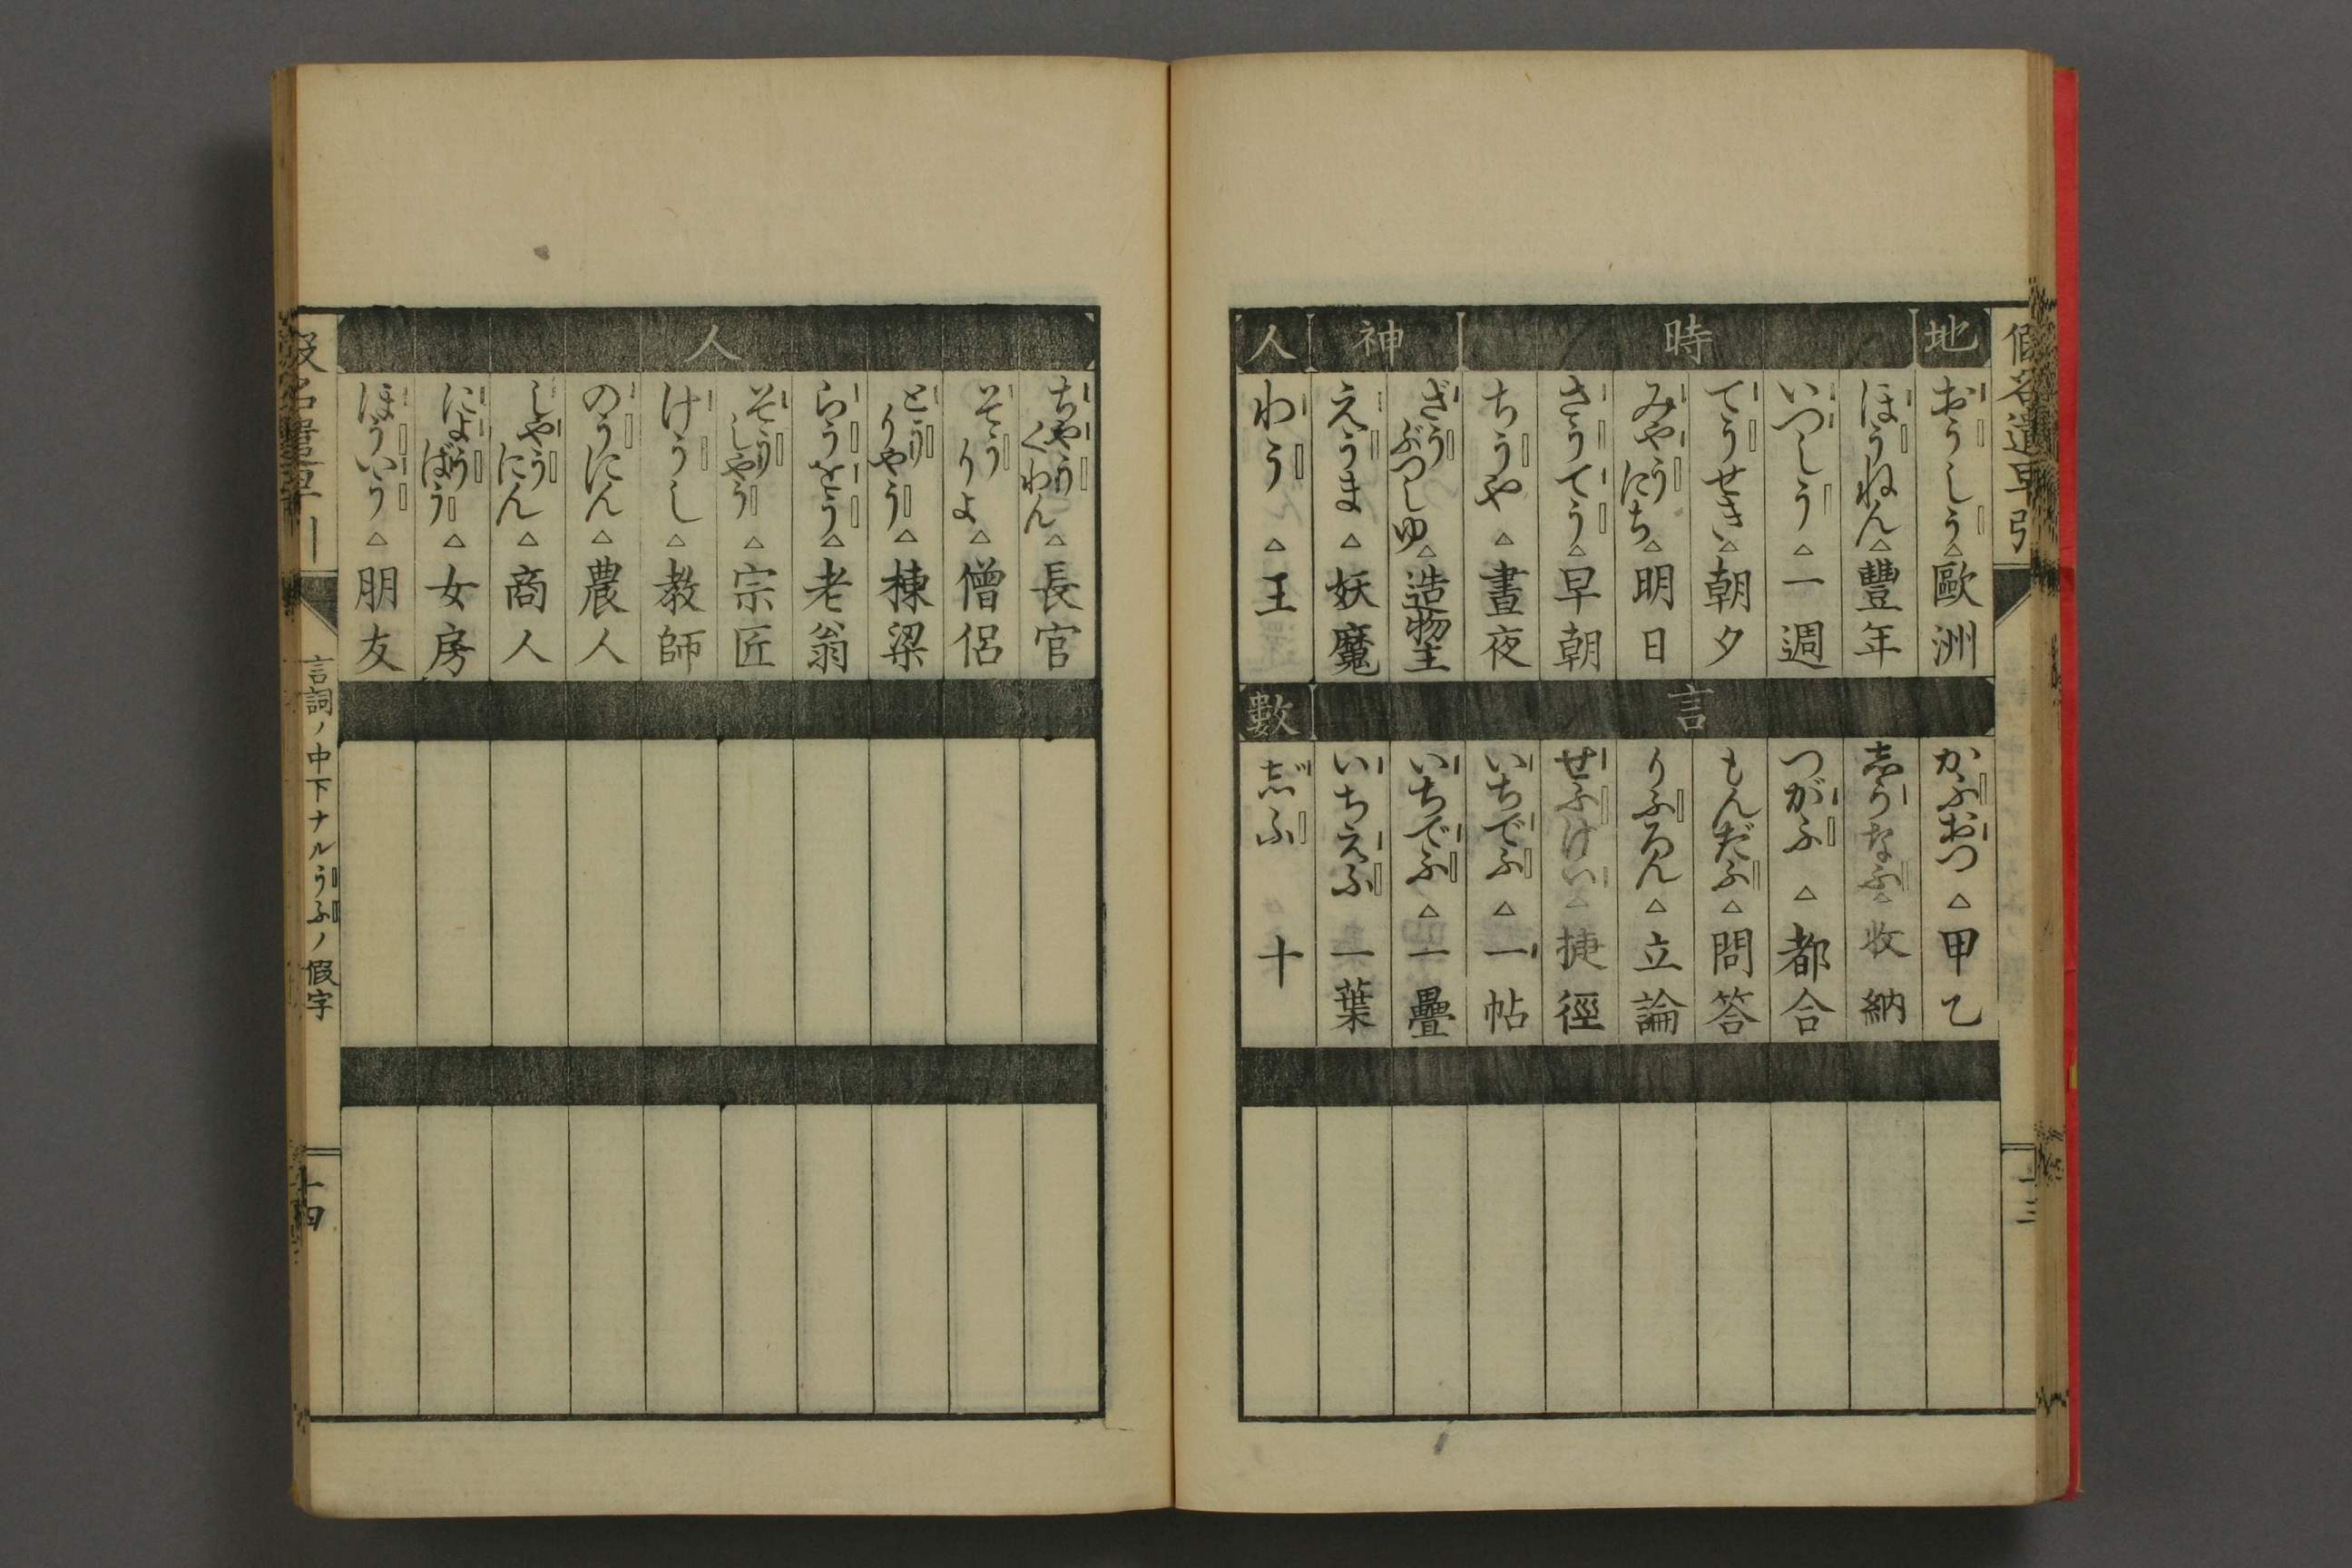 假名遣早引
地
おうしう△歐洲
時
ほうねん△豐年
いつしう△一週
てうせき△朝夕
みやうにち△明日
さうてう△早朝
ちうや△晝夜
神
ざうぶつしゆ△造物主
えうま△妖魔
人
わう△王
言
かふおつ△甲乙
志うなふ△收納
つがふ△都合
もんだふ△問答
りふろん△立論
せふけい△捷徑
いちでふ△一帖
いちでふ△一疊
いちえふ 一葉
數
志゛ふ △十
十三
人
ちやうくわん△長官
そうりよ△僧侶
とうりやう△棟梁
らうをう△老翁
そうしやう△宗匠
けうし△教師
のうにん△農人
しやうにん△商人
にようばう△女房
ほういう△朋友
假名遣早引
言詞ノ中下ナルうふノ假字
十四